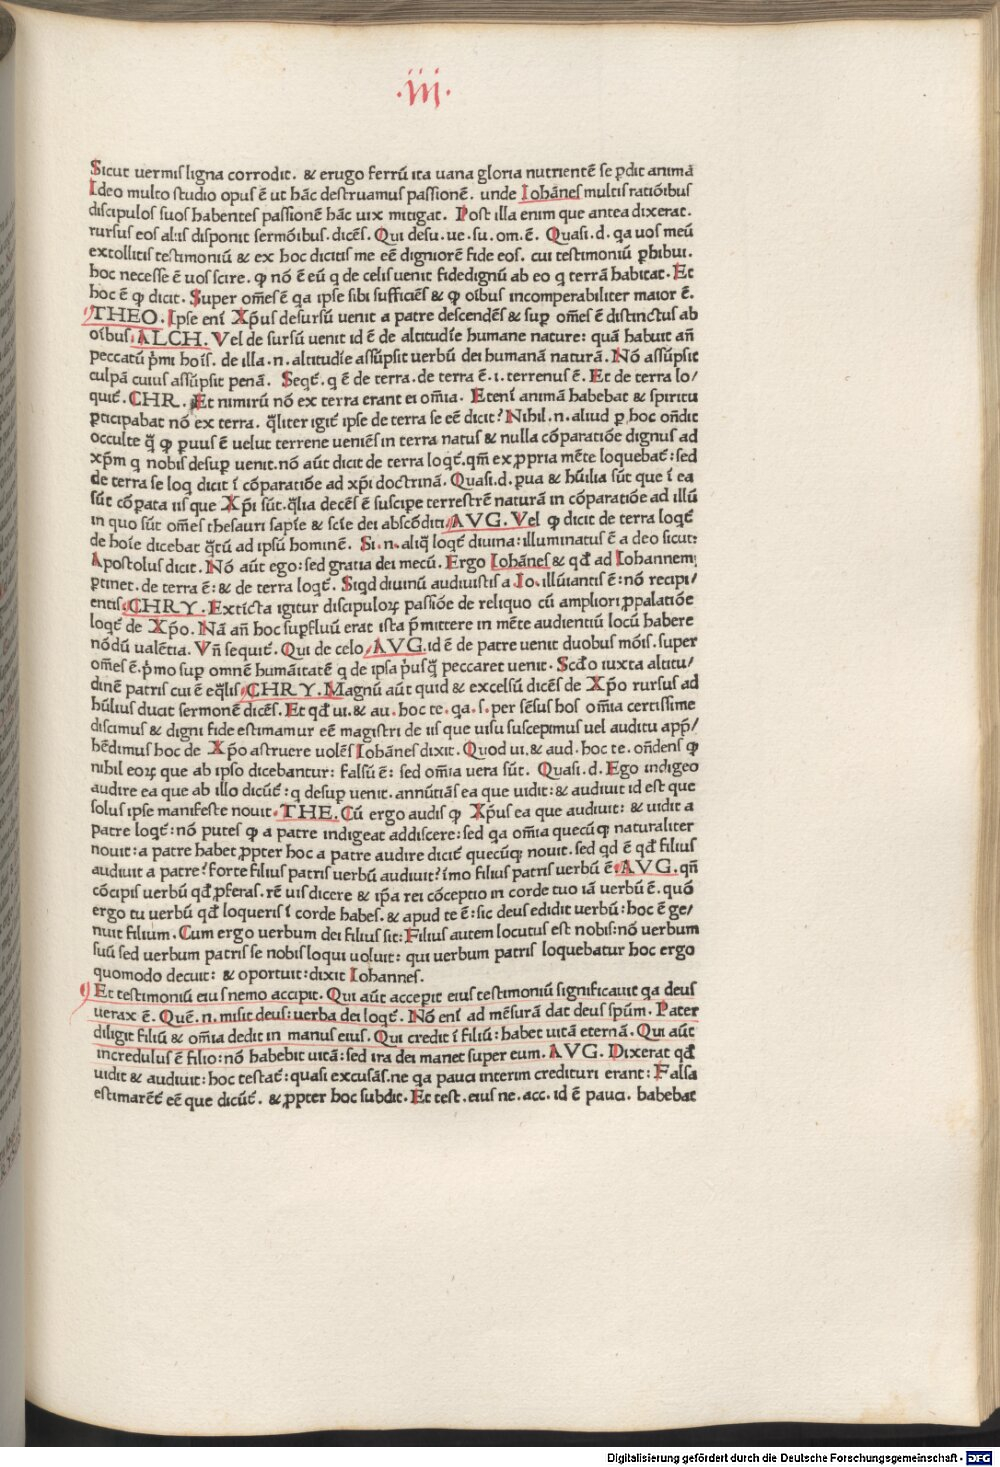 ·iij·
Sicut uermis ligna corrodit. & erugo ferrū ita uana gloria nutrientē se ꝑdit animā
Ideo multo studio opus ē ut hāc destruamus passionē. unde Iohānes multis ratiōibus
discipulos suos habentes passionē hāc uix mitigat. Post illa enim que antea dixerat.
rursus eos aliis disponit sermōibus. dicēs. Qui desu. ue. su. om. ē. Quasi. d. qa uos meū
extollitis testimoniū & ex hoc dicitis me eē digniorē fide eos. cui testimoniū ꝑhibui.
hoc necesse ē uos scire. ꝙ nō ē eū q de celis uenit fidedignū ab eo q terrā habitat. Et
hoc ē ꝙ dicit. Super om̄es ē qa ipse sibi sufficiēs & ꝙ oībus incomperabiliter maior ē.
THEO. Ipse eni Xp̄us desursū uenit a patre descendēs & suꝑ om̄es ē distinctus ab
oībus. ALCH. Vel de sursū uenit id ē de altitudīe humane nature: quā habuit añ
peccatū p̄mi hoīs. de illa. n. altitudīe assūpsit uerbū dei humanā naturā. Nō assūpsit
culpā cuius assūpsit penā. Seqt̄. q ē de terra. de terra ē. i. terrenus ē. Et de terra lo/
quit̄. CHR. Et nimirū nō ex terra erant ei om̄ia. Eteni animā habebat & spiritu
ꝑticipabat nō ex terra. q̄liter igit̄ ipse de terra se eē dicit? Nihil. n. aliud ꝑ hoc oñdit
occulte q̄ ꝙ ꝑuus ē uelut terrene ueniēs in terra natus & nulla cōparatiōe dignus ad
xp̄m q nobis desuꝑ uenit. nō aūt dicit de terra loqt̄. qm̄ ex ꝓpria mēte loquebat̄: sed
de terra se loq dicit ī cōparatiōe ad xp̄i doctrinā. Quasi. d. ꝑua & hūilia sūt que ī ea
sūt cōpata iis que Xp̄i sūt. q̄lia decēs ē suscipe terrestrē naturā in cōparatiōe ad illū
in quo sūt om̄es thesauri sapīe & scīe dei abscōditi. AVG. Vel ꝙ dicit de terra loqt̄
de hoīe dicebat q̄tū ad ipsū hominē. Si. n. aliq̄ loqt̄ diuina: illuminatus ē a deo sicut:
Apostolus dicit. Nō aūt ego: sed gratia dei mecū. Ergo Iohānes & qđ ad Iohannem
ꝑtinet. de terra ē: & de terra loqt̄. Siqd diuinū audiuistis a Io. illūiantis ē: nō recipi/
entis. CHRY. Extīcta igitur discipuloꝝ passiōe de reliquo cū ampliori ꝓpalatiōe
loqt̄ de Xp̄o. Nā añ hoc suꝑfluū erat ista p̄mittere in mēte audientiū locū habere
nōdū ualētia. Vñ sequit̄. Qui de celo. AVG. id ē de patre uenit duobus mōis. super
om̄es ē. p̄mo suꝑ omnē humāitatē q de ipsa p̄usq̄ peccaret uenit. Scđo iuxta altitu/
dinē patris cui ē eq̄lis. CHRY. Magnū aūt quid & excelsū dicēs de Xp̄o rursus ad
hūlius ducit sermonē dicēs. Et qđ ui. & au. hoc te. qa. s. per sēsus hos om̄ia certissime
discimus & digni fide estimamur eē magistri de iis que uisu suscepimus uel auditu app̄/
hēdimus hoc de Xp̄o astruere uolēs Iohānes dixit. Quod ui. & aud. hoc te. oñdens ꝙ
nihil eoꝝ que ab ipso dicebantur: falsū ē: sed om̄ia uera sūt. Quasi. d. Ego indigeo
audire ea que ab illo dicūt̄: q desuꝑ uenit. annūtiās ea que uidit: & audiuit id est que
solus ipse manifeste nouit. THE. Cū ergo audis ꝙ Xp̄us ea que audiuit: & uidit a
patre loqt̄: nō putes ꝙ a patre indigeat addiscere: sed qa om̄ia quecūꝙ naturaliter
nouit: a patre habet ꝓpter hoc a patre audire dicit̄ quecūqꝫ nouit. sed qd ē qđ filius
audiuit a patre? forte filius patris uerbū audiuit? īmo filius patris uerbū ē. AVG. qñ
cōcipis uerbū qđ ꝓferas. rē uis dicere & ip̄a rei cōceptio in corde tuo iā uerbū ē. quō
ergo tu uerbū qđ loqueris ī corde habes. & apud te ē: sic deus edidit uerbū: hoc ē ge/
nuit filium. Cum ergo uerbum dei filius sit: Filius autem locutus est nobis: nō uerbum
suū sed uerbum patris se nobis loqui uoluit: qui uerbum patris loquebatur hoc ergo
quomodo decuit: & oportuit: dixit Iohannes.
Et testimoniū eius nemo accipit. Qui aūt acceꝑit eius testimoniū significauit qa deus
uerax ē. Quē. n. misit deus: uerba dei loqt̄. Nō eni ad mēsurā dat deus spūm. Pater
diligit filiū & om̄ia dedit in manus eius. Qui credit ī filiū: habet uitā eternā. Qui aūt
incredulus ē filio: nō habebit uitā: sed ira dei manet super eum. AVG. Dixerat qđ
uidit & audiuit: hoc testat̄: quasi excusās. ne qa pauci interim credituri erant: Falsa
estimarēt̄ eē que dicūt̄. & ꝓpter hoc subdit. Et test. eius ne. acc. id ē pauci. habebat
Digitalisierung gefördert durch die Deutsche Forschungsgemeinschaft - DFG